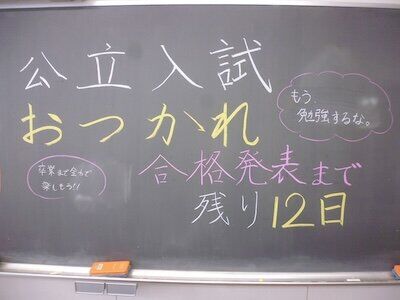 公立入試
もう、
勉強するな。
おつかれ
合格発表まで
卒業まで全力で
楽しもう!!
残り12日